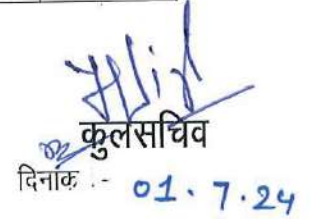 कुलसचिव
दिनांक :- 01.7.24